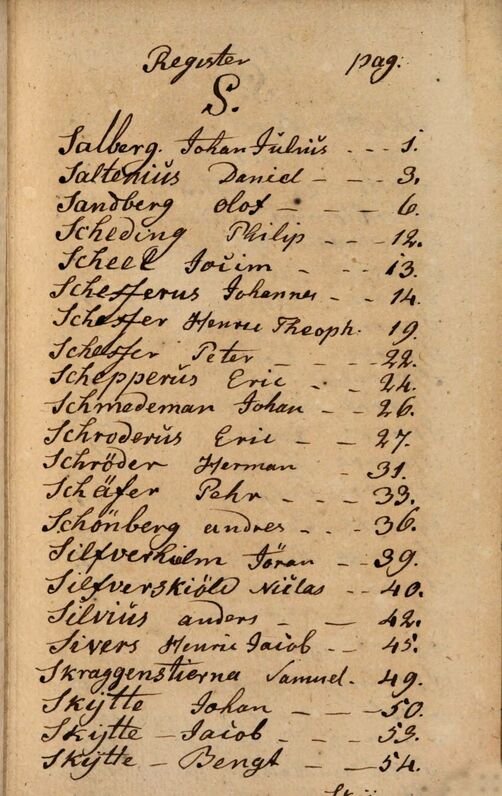 Register pag:
S.
Salberg. Johan Julius - - - 1.
Saltenius Daniel - - - 3.
Sandberg olof - - - 6.
Scheding Philip - - - 12.
Scheel Jocim - - - 13.
Schefferus Johannes - - 14.
Scheffer Henric Theoph. 19.
Scheffer Peter - - - 22.
Schepperus Eric - - 24.
Schmedeman Johan - - 26.
Schroderus Eric - - 27.
Schröder Herman - 31.
Schäfer Pehr - - - 33.
Schönberg andres - - - 36.
Silfverhielm Jöran - - 39.
Silfverskiöld Niclas - - 40.
Silvius anders - - - 42.
Sivers Henric Jacob - - 45.
Skraggenstierna Samuel. 49.
Skytte Johan - - - 50.
Skytte - Jacob - - - 53.
Skytte - Bengt - - 54.